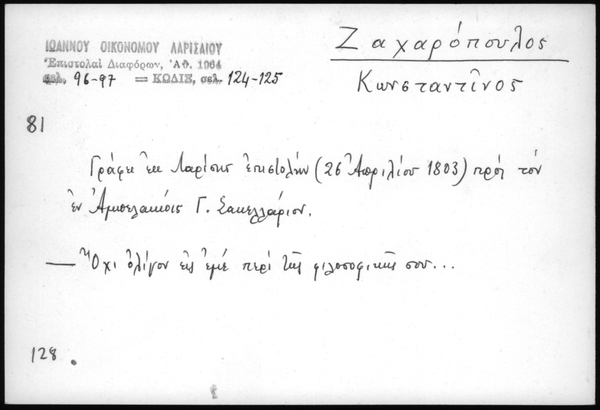 ΙΩΑΝΝΟΥ ΟΙΚΟΝΟΜΟΥ ΛΑΡΙΣΑΙΟΥ
Ἐπιστολαὶ Διαφόρων, Ἀθ. 1964
σελ. 96-97 = ΚΩΔΙΞ, σελ. 124-125
Ζαχαρόπουλος
Κωνσταντῖνος
81
Γράφει ἐκ Λαρίσης ἐπιστολὴν (26 Ἀπριλίου 1803) πρὸς τὸν
ἐν Ἀμπελακίοις Γ. Σακελλάριον.
— Ὄχι ὀλίγον εἰς ἐμὲ περὶ τῆς φιλοσοφικῆς σου...
128.